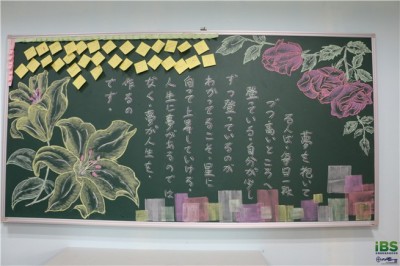 夢を抱いて
る人は・毎日一段
づつ高いところへ
登っている・自分が少し
ずつ登っているのが
わかってるこそ、星に
向って上昇していける・
人生に夢があるのでは
なく・夢が人生を・
作るの
です・
iBS